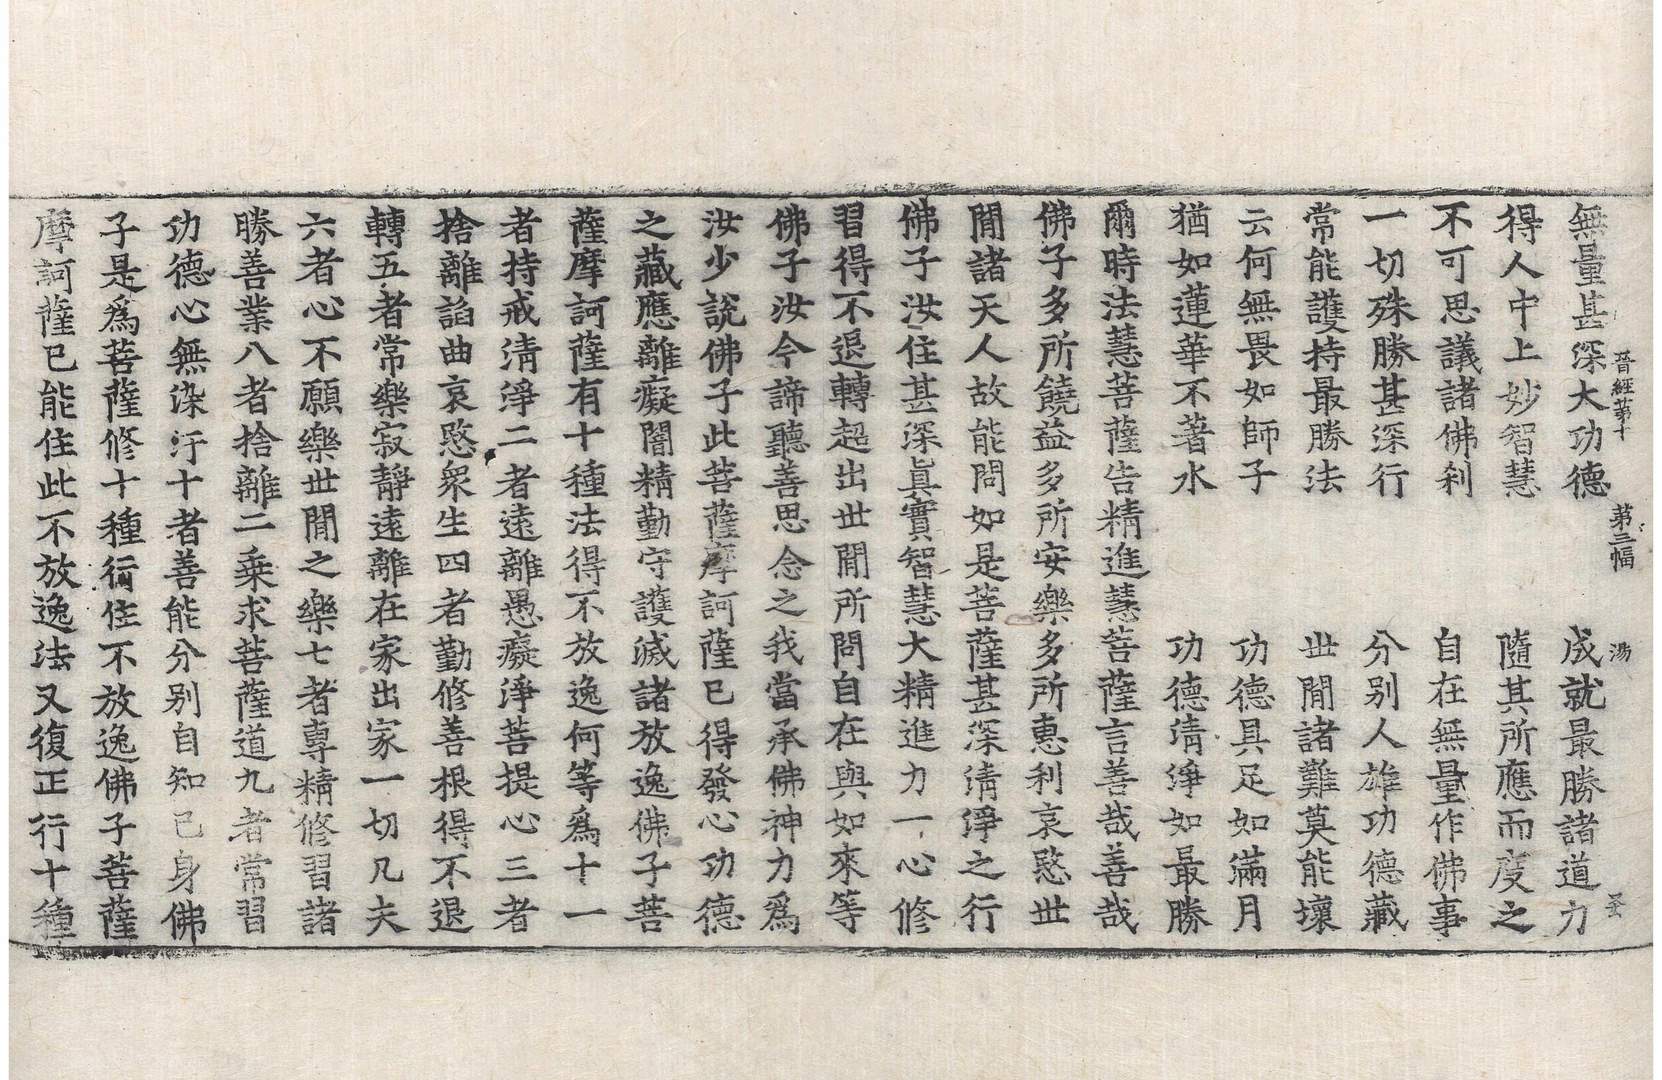 晉經第十 第三幅 湯
無量甚深大功德 成就最勝諸道力
得人中上妙智慧 隨其所應而度之
不可思議諸佛刹 自在無量作佛事
一切殊勝甚深行 分别人雄功德藏
常能護持最勝法 世閒諸難莫能壞
云何無畏如師子 功德具足如滿月
猶如蓮華不著水 功德清淨如最勝
爾時法慧菩薩告精進慧菩薩言善哉善哉
佛子多所饒益多所安樂多所惠利哀愍世
閒諸天人故能問如是菩薩甚深清淨之行
佛子汝住甚深眞實智慧大精進力一心修
習得不退轉超出世閒所問自在與如來等
佛子汝今諦聽善思念之我當承佛神力爲
汝少說佛子此菩薩摩訶薩已得發心功德
之藏應離癡闇精勤守護滅諸放逸佛子菩
薩摩訶薩有十種法得不放逸何等爲十一
者持戒淸淨二者遠離愚癡淨菩提心三者
捨離諂曲哀愍衆生四者勤修善根得不退
轉五者常樂寂靜遠離在家出家一切凡夫
六者心不願樂世閒之樂七者專精修習諸
勝善業八者捨離二乘求菩薩道九者常習
功德心無染汙十者善能分别自知己身佛
子是爲菩薩修十種行住不放逸佛子菩薩
摩訶薩已能住此不放逸法又復正行十種